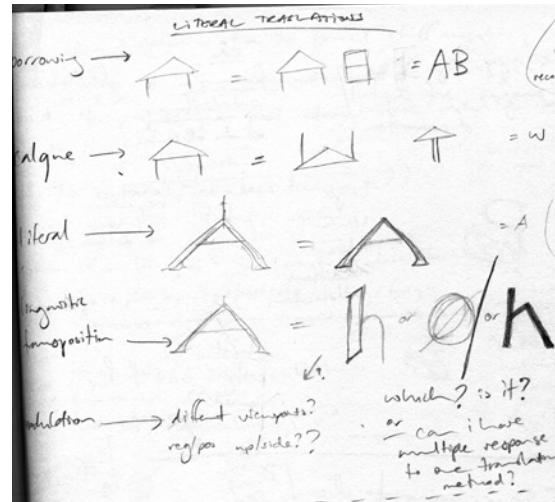 LITERAL TRASLATIONS
borrowing → = = AB
reco
calque → = = W
literal → = = A
linguistic
transposition → = h or Ø or h
?
modulation → different viewpoints?
reg/pos up/side??
which? is it?
or can i have
multiple response
to one translation
method?